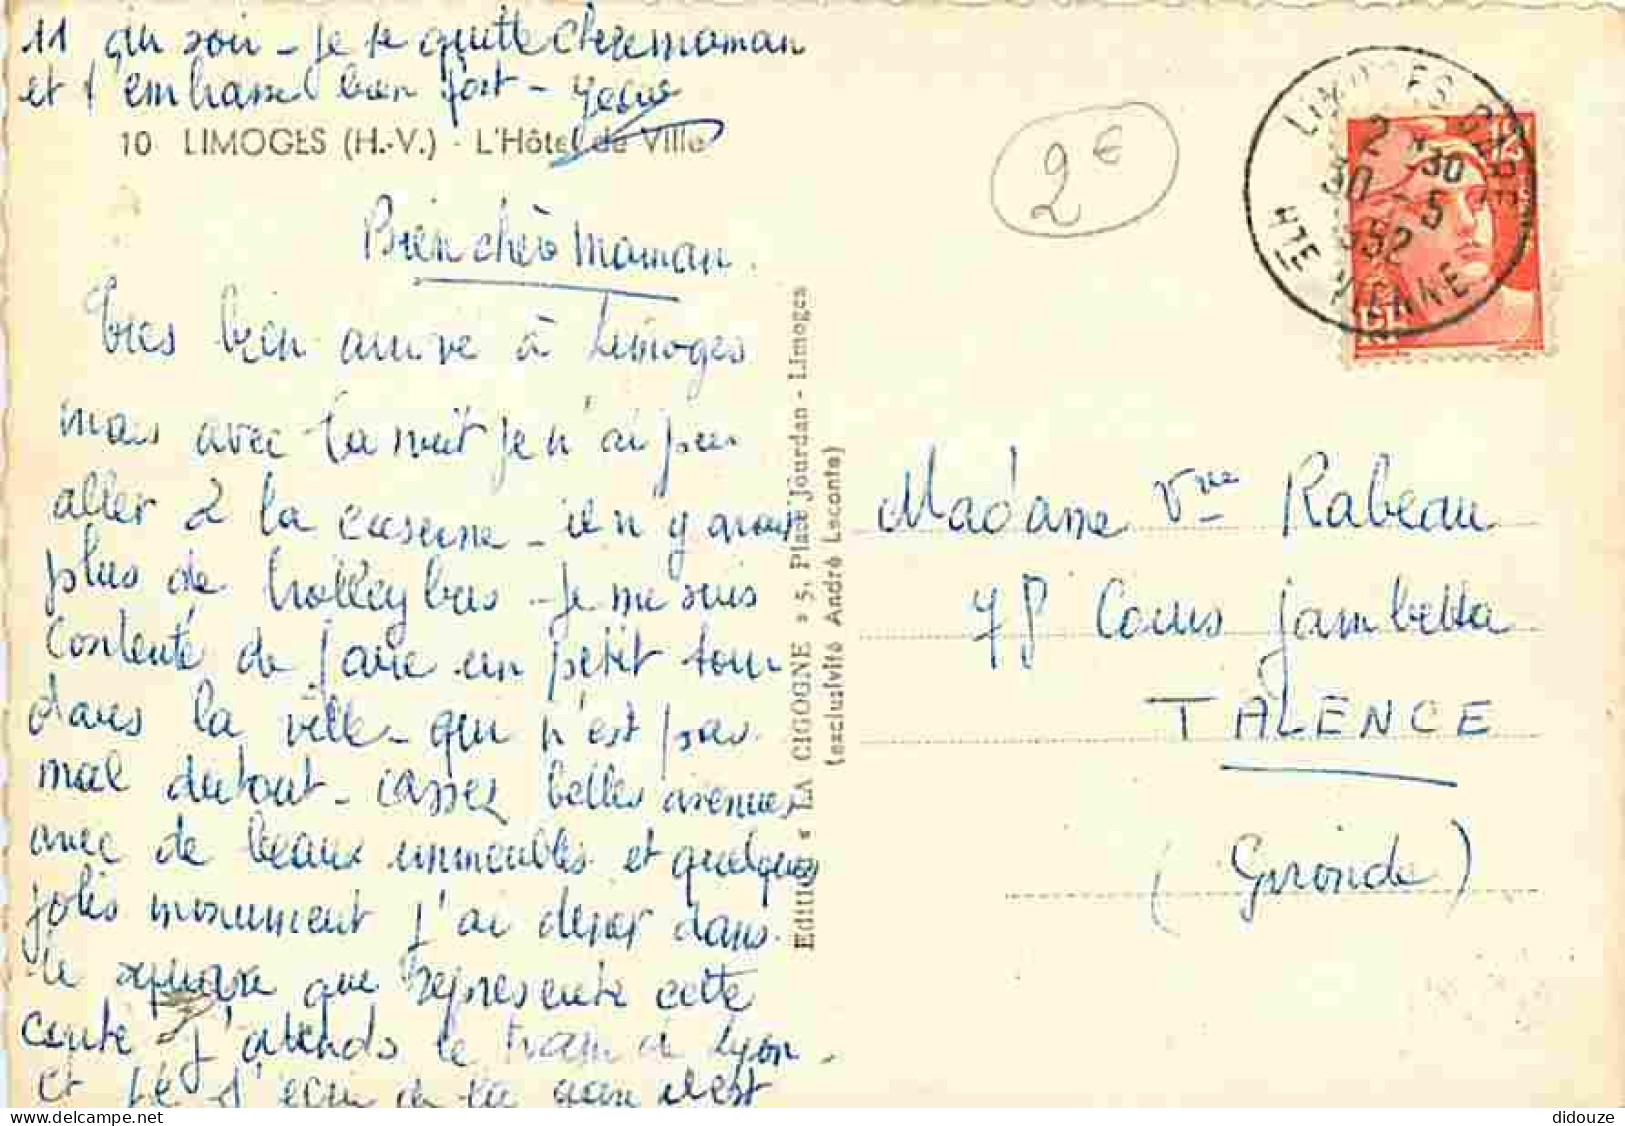 11 du soir - Je te quitte chere maman
et t'embrasse bien fort -
10 LIMOGES (H.-V.) - L'Hôtel de Ville
Bien chère Maman.
Très bien arrivé à Limoges
mais avec la nuit je n'ai pu
aller à la caserne - il n'y avait
plus de trolleybus - Je me suis
contenté de faire un petit tour
dans la ville - qui n'est pas
mal du tout - assez belles avenues
avec de beaux immeubles et quelques
jolis monument j'ai diner dans
le square que représente cette
carte J'attends le train de Lyon -
et je t'écris de la gare il est
Edition « LA CIGOGNE » 5, Place Jourdan - Limoges
(exclusivité André Leconte)
2€
LIMOGES GARE
2 30
30 5
52
HTE VIENNE
Madame Vve Rabeau
48 Cours Gambetta
TALENCE
(Gironde)
didouze